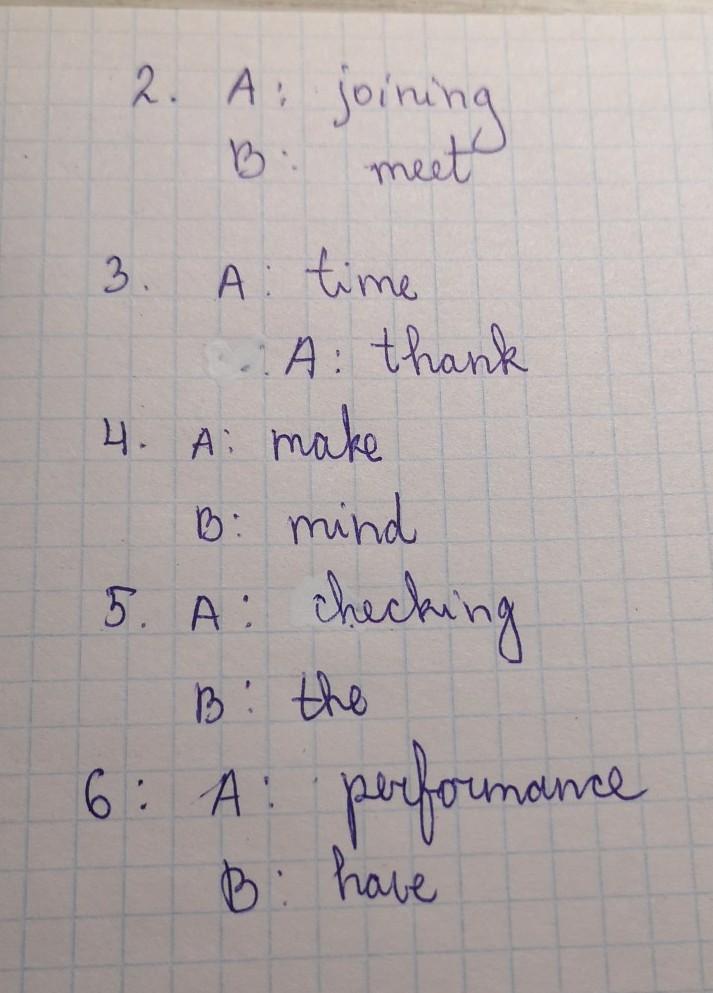 2. A: joining
B: meet
3. A: time
A: thank
4. A: make
B: mind
5. A: checking
B: the
6: A: performance
B: have